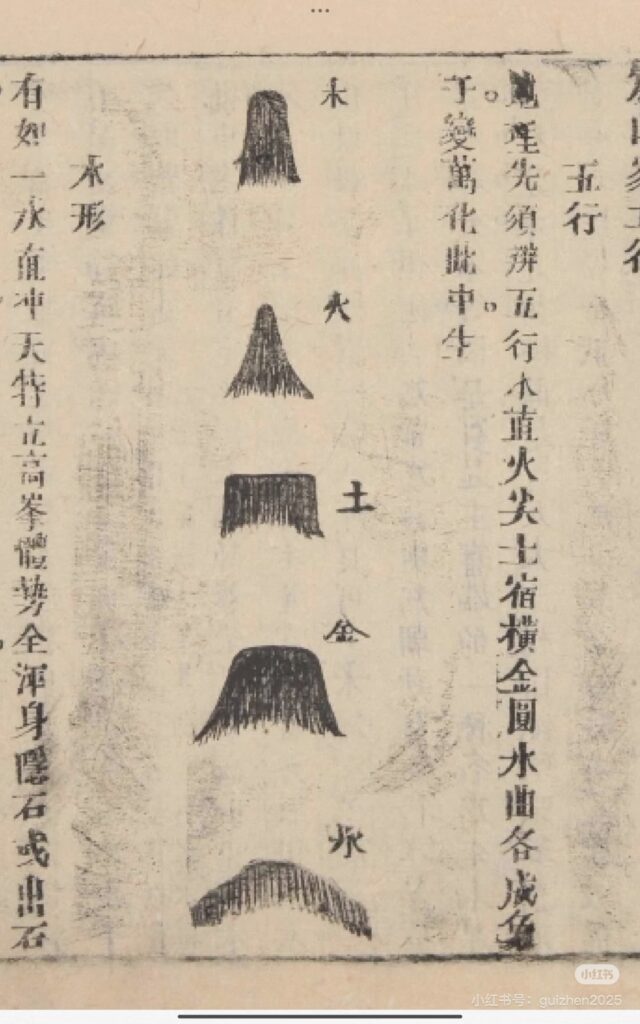 五行
地理先須辨五行木直火尖土宿橫金圓水曲各成
千變萬化此中生
木
火
土
金
水
木形
有如一木直冲天特立高峯體勢全渾身隱石或出石
小红书
小红书号：guizhen2025